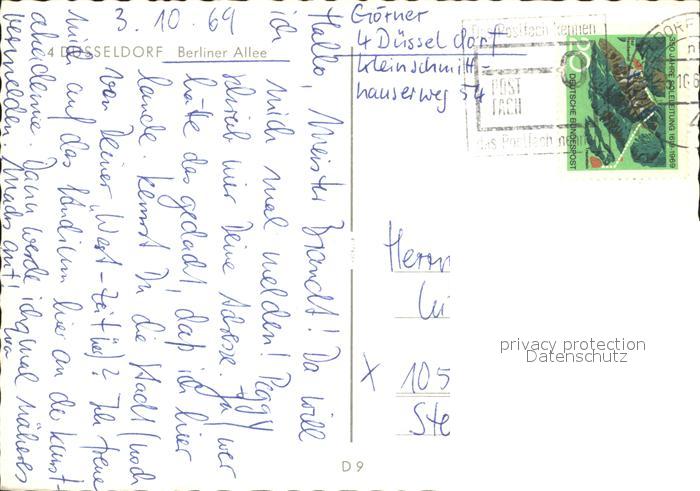 3.10.69
4 DÜSSELDORF Berliner Allee
Hallo, Meister Brandt! Da will
ich mich mal melden! Peggy
schrieb mir Deine Adresse. Ja, wer
hätte das gedacht, daß ich hier
lande. Kennst Du die Stadt (noch
von Deiner "West-Zeit" her)? Ich freue
mich auf das Studium hier an der Kunst-
akademie. Dann werde ich mal näheres
vermelden. Mach's gut
Görner
4 Düsseldorf
Kleinschmitt-
hauserweg 54
Postfach kennen
POST
FACH
das Postfach nennen
20
DEUTSCHE BUNDESPOST
250 JAHRE POLLEITUNG 1969
Herrn
x 105
Ste
D 9
privacy protection
Datenschutz